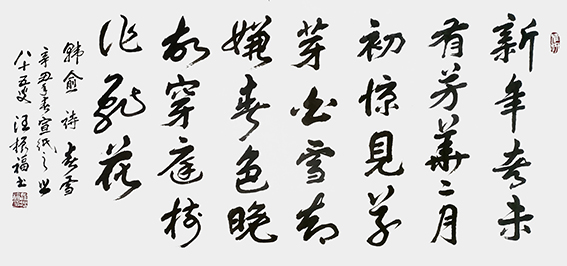 新年都未
有芳華二月
初惊見草
芽白雪却
嫌春色晚
故穿庭樹
作飛花
韩愈诗春雪
辛丑年春宣纸之
八十五叟汪振福书